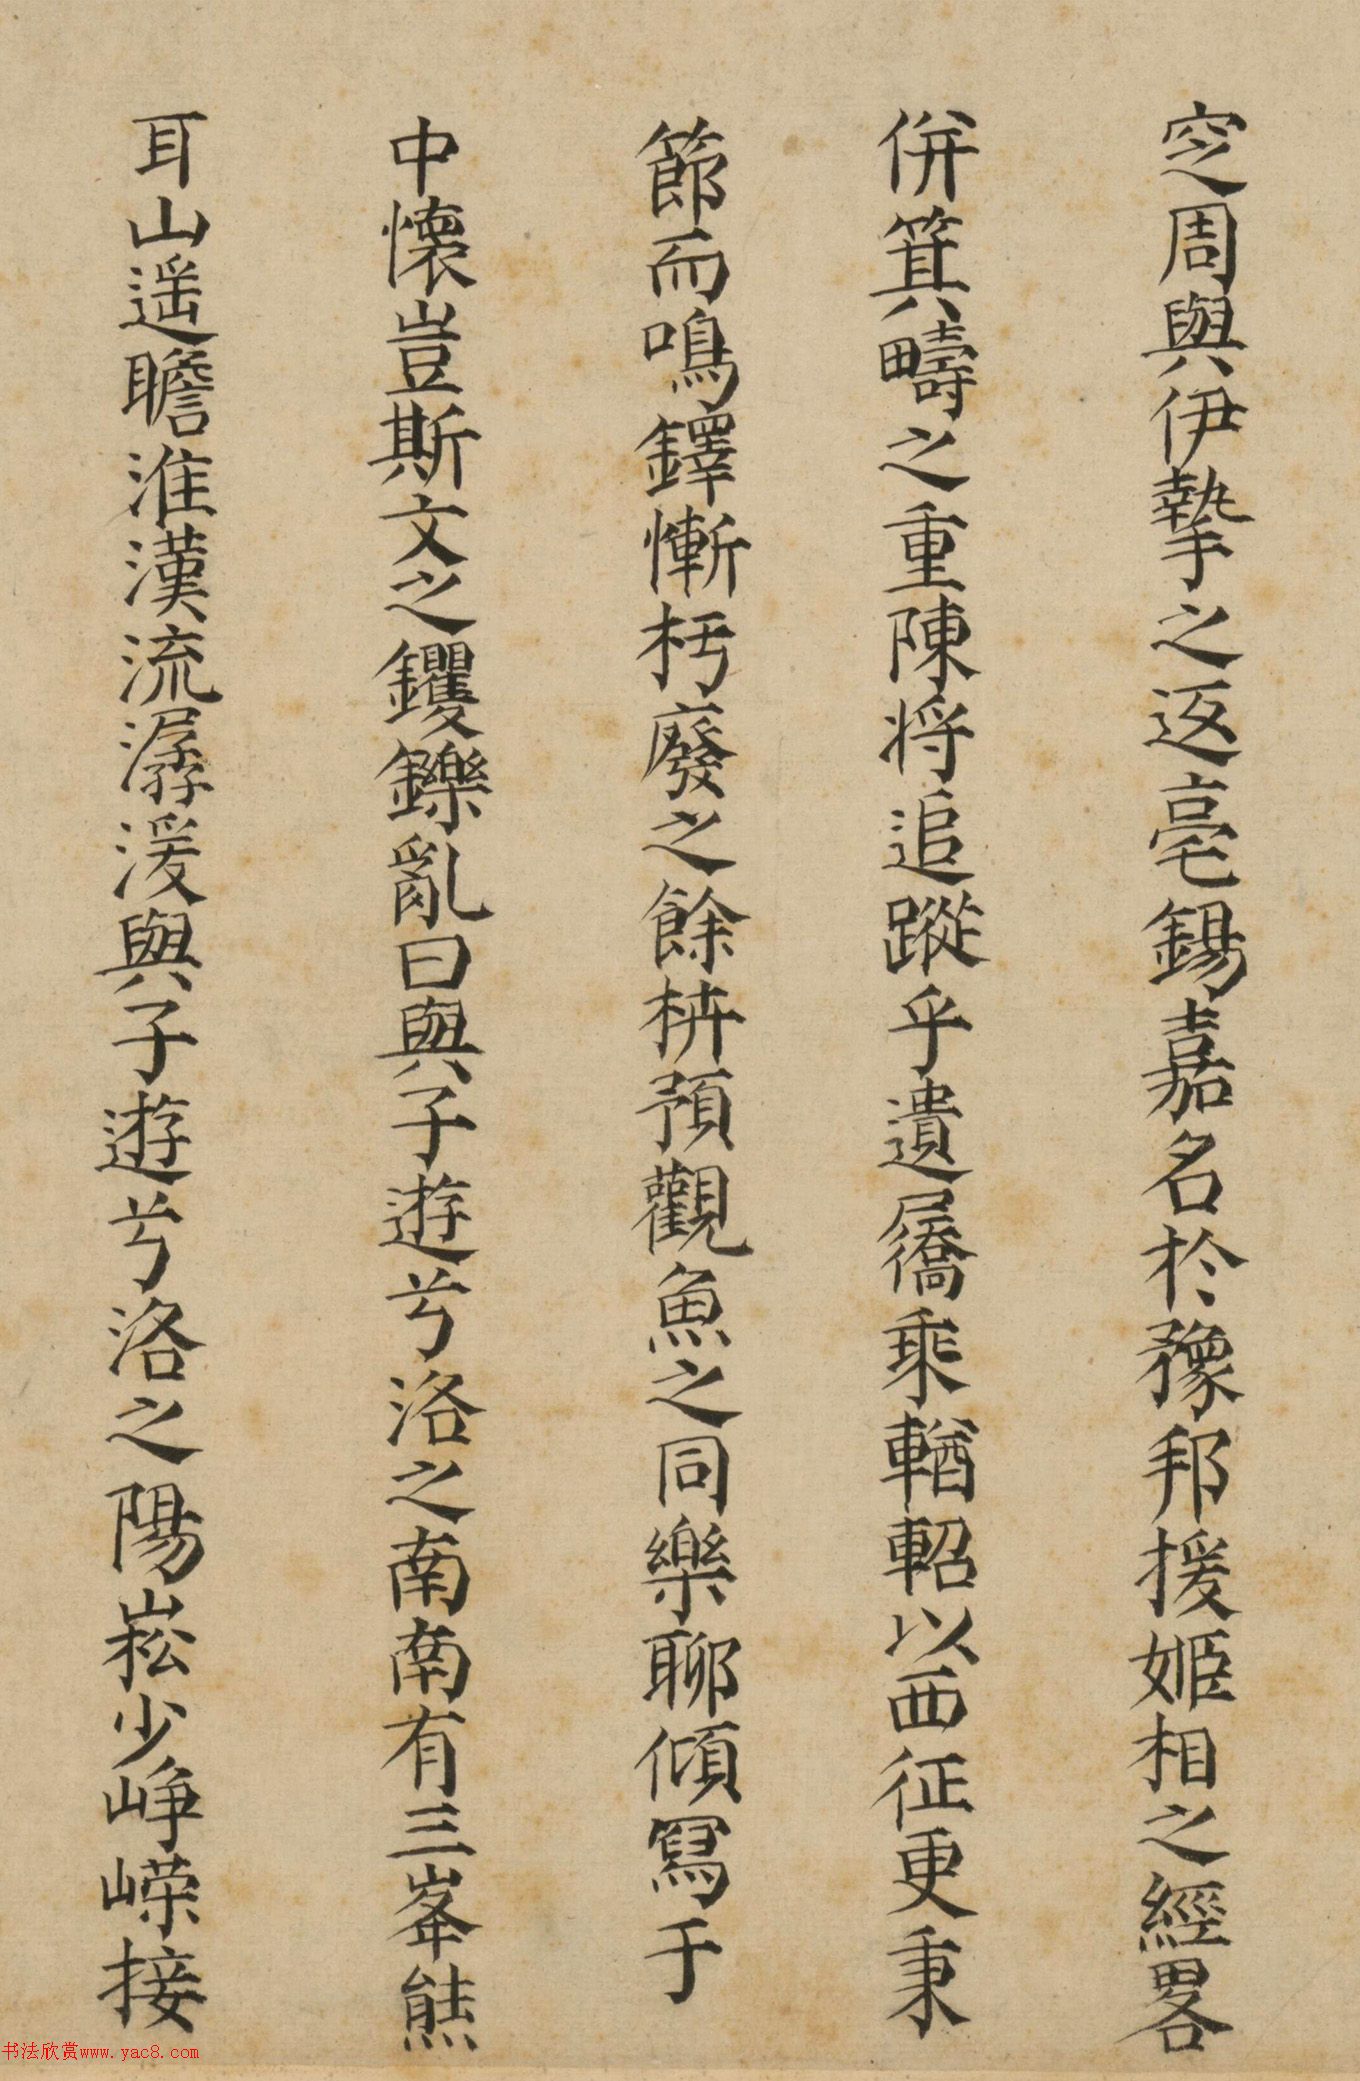 定周與伊摯之返亳錫嘉名於豫邦援姬相之經畧
併箕疇之重陳将追蹤乎遺屩乘輶軺以西征更秉
節而鳴鐸慚朽廢之餘枿預觀魚之同樂聊傾寫于
中懷豈斯文之钁鑠亂曰與子遊兮洛之南南有三峯熊
耳山遥瞻淮漢流潺湲與子遊兮洛之陽崧少崢嶸接
书法欣赏www.yac8.com